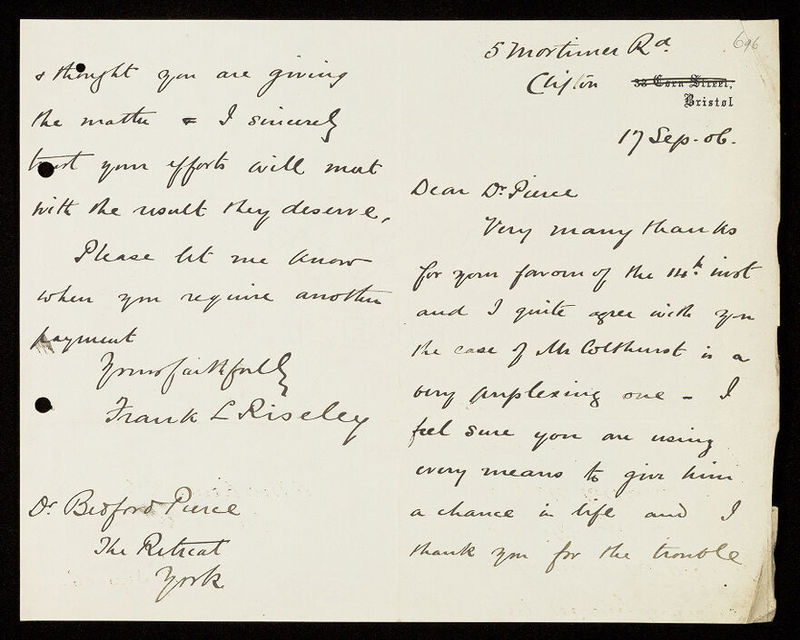 696
5 Mortimer Rd
Clifton 38 Corn Street,
Bristol
17 Sep. 06.
Dear Dr Pierce
Very many thanks
for your favour of the 14th inst
and I quite agree with you
the case of Mr Colthurst is a
very perplexing one - I
feel sure you are using
every means to give him
a chance in life and I
thank you for the trouble
& thought you are giving
the matter & I sincerely
trust your efforts will meet
with the result they deserve,
Please let me know
when you require another
payment
Yours faithfully
Frank L Riseley
Dr Bedford Pierce
The Retreat
York